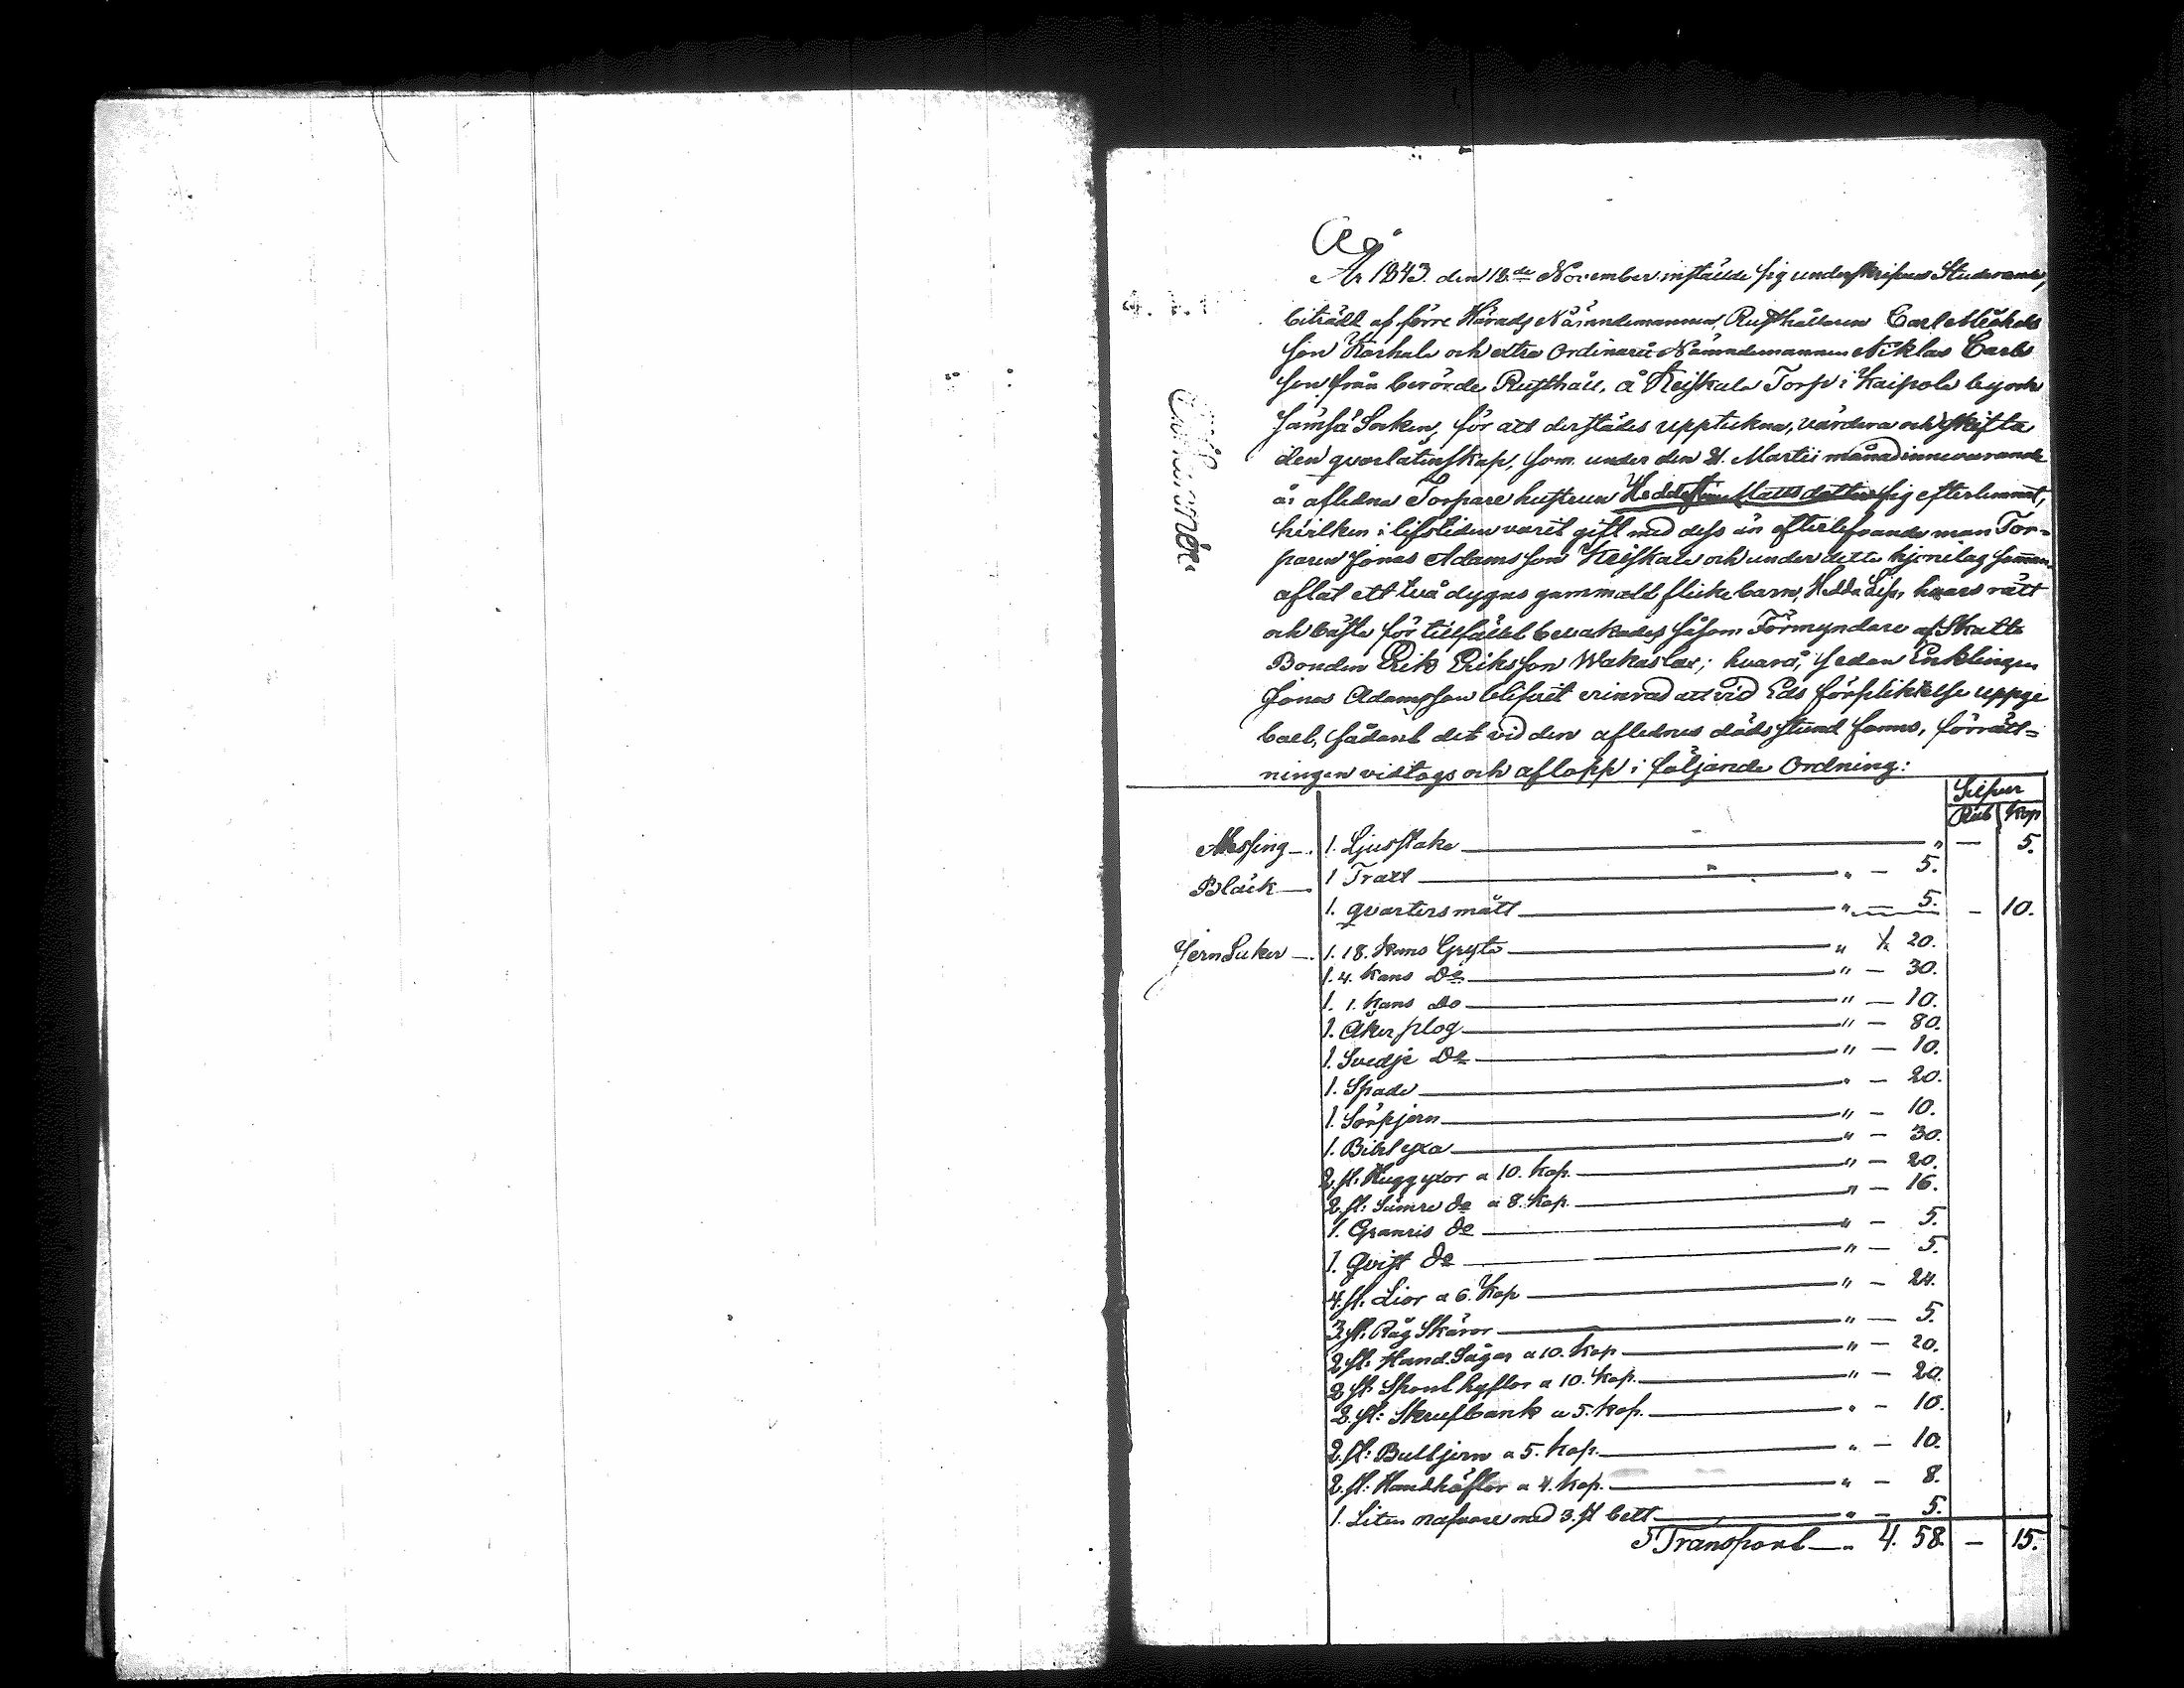 År 1843. den 18.de November instälde sig underskrifven Studerande,
biträdd af förre Härads Nämndemannen, Rusthållaren Carl Michels
son Korhala och extra Ordinarie Nämndemannen Niklas Carls
son från berörde Rusthåll, å Keiskala Torp i Kaipola by och
Jämsä Socken, för att derstädes uppteckna, värdera och skifta
den qvarlåtenskap, som under den 21. Martii månad innevarande
år aflidna Torpare hustrun Hedda Matts dotter sig efterlemnat,
hvilken i lifstiden varit gift med dess än efterlefvande man Tor-
paren Jonas Adamsson Keiskala och under detta hjonelag samman
aflat ett två dygns gammalt flicke barn, Hedda Lisa, hvars rätt
och bästa för tillfället bevakades såsom Förmyndare af Skatte
Bonden Erik Eriksson Wakaslax; hvarå, sedan Enklingen
Jonas Adamsson blifvit erinrad att vid Eds förpliktelse uppge
boet, sådant det vid den aflednes dödsstund fanns, förrätt-
ningen vidtogs och aflopp i följande Ordning:
Silfver
Rub Kop
Messing 1. Ljusstake " — 5.
Bläck 1 Tratt " — 5.
1. qvartersmått " — 5. — 10.
Jern Saker 1. 18. Kans Gryta " 1. 20.
1. 4. Kans Do " — 30.
1. 1. Kans Do " — 10.
1. Åker plog " — 80.
1. Svedje Do " — 10.
1. Spade " — 20.
1. Sörpjern " — 10.
1. Bihl yxa " — 30.
2. st: Huggyxor a 10. Kop. " — 20.
2. st: Sämre do a 8. Kop. " — 16.
1. Granris do " — 5.
1. Qvist do " — 5.
4. st. Lior a 6. Kop " — 24.
3. st. Råg Skäror " — 5.
2 st. Hand Sågar a 10. Kop " — 20.
2 st. Sponthyflor a 10. Kop. " — 20.
2. st: Skrufbank a 5. Kop. " — 10.
2. st: Bulljern a 5. Kop. " — 10.
2. st: Handhöflor a 4. Kop. " — 8.
1. Liten nafvare med 3. st bett " — 5.
Transport " 4. 58. — 15.